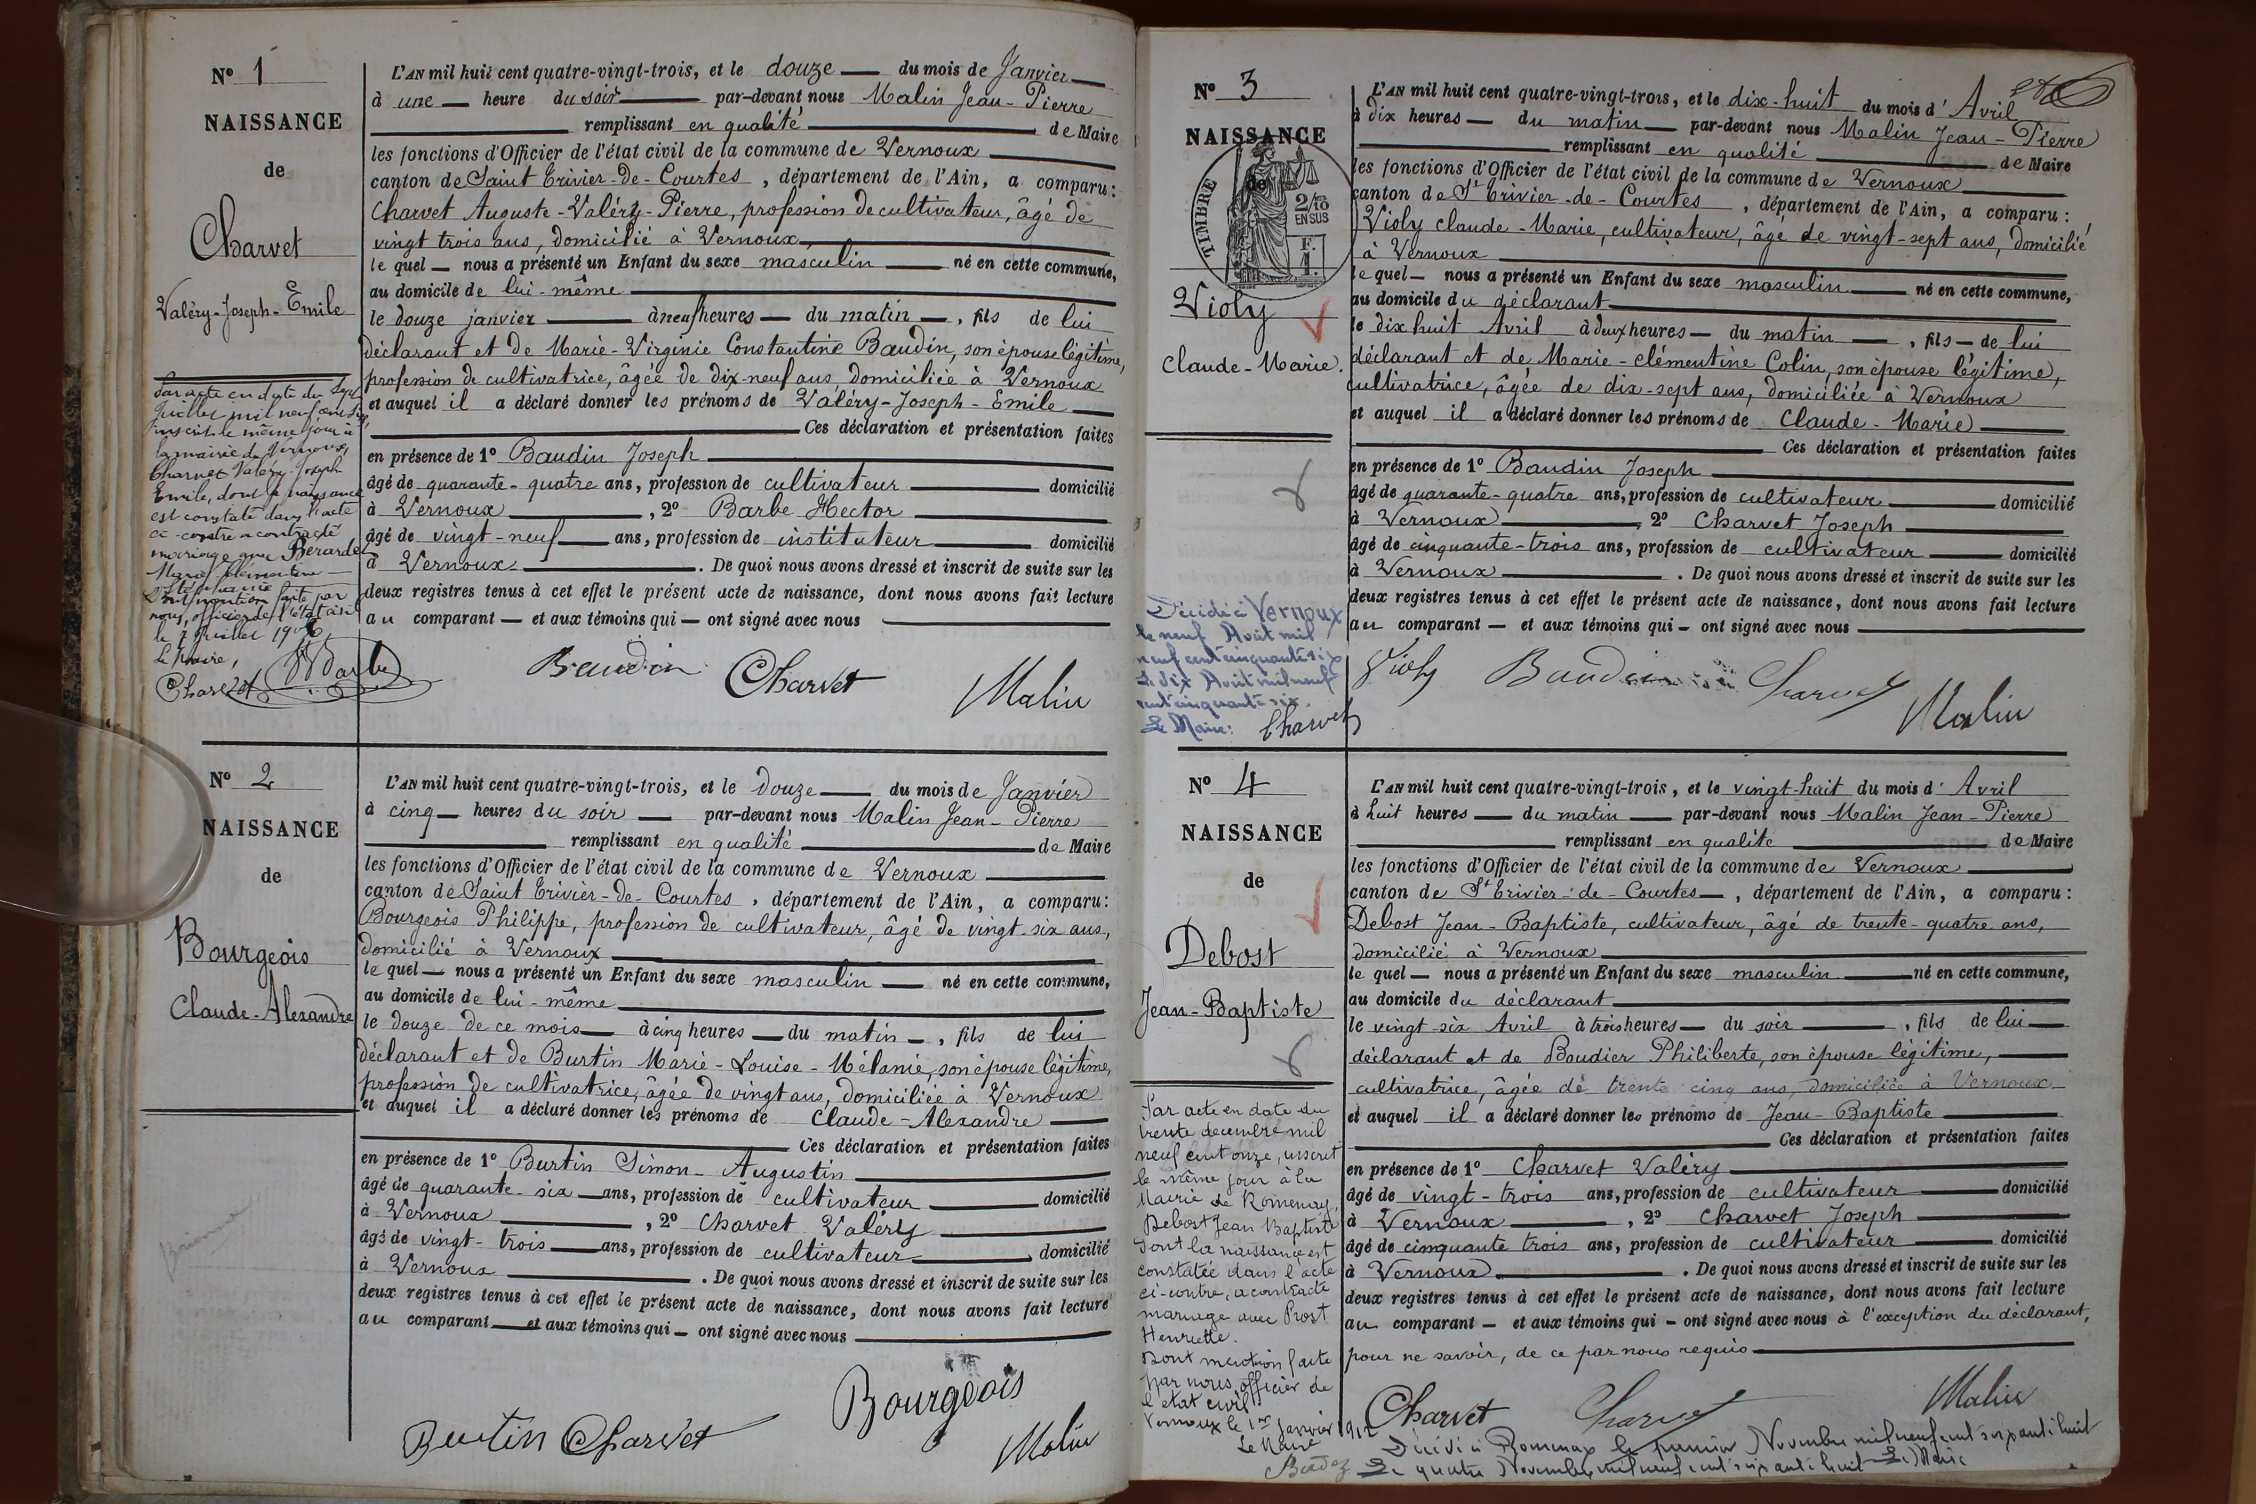 N° 1
NAISSANCE
de
Charvet
Valéry-Joseph-Emile
Par acte en date du sept
Juillet mil neuf cent six
inscrit le même jour à
la mairie de Vernoux,
Charvet Valéry-Joseph
Emile, dont la naissance
est constaté dans l'acte
ci-contre a contracté
mariage avec Berardet
Marie Clémentine
Dont mention faite par
nous, officier de l'état civil
le 7 Juillet 1906
Le Maire,
Charvet
L'AN mil huit cent quatre-vingt-trois, et le douze du mois de Janvier
à une heure du soir par-devant nous Malin Jean-Pierre
remplissant en qualité de Maire
les fonctions d'Officier de l'état civil de la commune de Vernoux
canton de Saint Trivier-de-Courtes, département de l'Ain, a comparu:
Charvet Auguste-Valéry-Pierre, profession de cultivateur, âgé de
vingt trois ans, domicilié à Vernoux
le quel nous a présenté un Enfant du sexe masculin né en cette commune,
au domicile de lui-même
le douze janvier à neuf heures du matin, fils de lui
déclarant et de Marie-Virginie Constantine Baudin, son épouse légitime,
profession de cultivatrice, âgée de dix-neuf ans, domiciliée à Vernoux
et auquel il a déclaré donner les prénoms de Valéry-Joseph-Emile
Ces déclaration et présentation faites
en présence de 1° Baudin Joseph
âgé de quarante-quatre ans, profession de cultivateur domicilié
à Vernoux, 2° Barbe Hector
âgé de vingt-neuf ans, profession de instituteur domicilié
à Vernoux. De quoi nous avons dressé et inscrit de suite sur les
deux registres tenus à cet effet le présent acte de naissance, dont nous avons fait lecture
au comparant et aux témoins qui ont signé avec nous
HBarbe Baudin Charvet Malin
N° 2
NAISSANCE
de
Bourgeois
Claude-Alexandre
L'AN mil huit cent quatre-vingt-trois, et le douze du mois de Janvier
à cinq heures du soir par-devant nous Malin Jean-Pierre
remplissant en qualité de Maire
les fonctions d'Officier de l'état civil de la commune de Vernoux
canton de Saint Trivier-de-Courtes, département de l'Ain, a comparu:
Bourgeois Philippe, profession de cultivateur, âgé de vingt-six ans,
domicilié à Vernoux
le quel nous a présenté un Enfant du sexe masculin né en cette commune,
au domicile de lui-même
le douze de ce mois à cinq heures du matin, fils de lui
déclarant et de Burtin Marie-Louise-Mélanie, son épouse légitime,
profession de cultivatrice, âgée de vingt ans, domiciliée à Vernoux
et auquel il a déclaré donner les prénoms de Claude-Alexandre
Ces déclaration et présentation faites
en présence de 1° Burtin Simon-Augustin
âgé de quarante-six ans, profession de cultivateur domicilié
à Vernoux, 2° Charvet Valéry
âgé de vingt-trois ans, profession de cultivateur, domicilié
à Vernoux. De quoi nous avons dressé et inscrit de suite sur les
deux registres tenus à cet effet le présent acte de naissance, dont nous avons fait lecture
au comparant et aux témoins qui ont signé avec nous
Burtin Charvet Bourgeois Malin
N° 3
NAISSANCE
de
TIMBRE
2/10
EN SUS
F.
1.
Violy
Claude-Marie.
Décédé à Vernoux
le neuf Août mil
neuf cent cinquante six
Le dix Août mil neuf
cent cinquante six.
Le Maire: Charvet
L'AN mil huit cent quatre-vingt-trois, et le dix-huit du mois d'Avril
à dix heures du matin par-devant nous Malin Jean-Pierre
remplissant en qualité de Maire
les fonctions d'Officier de l'état civil de la commune de Vernoux
canton de St Trivier-de-Courtes, département de l'Ain, a comparu:
Violy Claude-Marie, cultivateur, âgé de vingt-sept ans, domicilié
à Vernoux
le quel nous a présenté un Enfant du sexe masculin né en cette commune,
au domicile du déclarant
le dix huit Avril à deux heures du matin, fils de lui
déclarant et de Marie-Clémentine Colin, son épouse légitime,
cultivatrice, âgée de dix-sept ans, domiciliée à Vernoux
et auquel il a déclaré donner les prénoms de Claude-Marie
Ces déclaration et présentation faites
en présence de 1° Baudin Joseph
âgé de quarante-quatre ans, profession de cultivateur domicilié
à Vernoux, 2° Charvet Joseph
âgé de cinquante-trois ans, profession de cultivateur domicilié
à Vernoux. De quoi nous avons dressé et inscrit de suite sur les
deux registres tenus à cet effet le présent acte de naissance, dont nous avons fait lecture
au comparant et aux témoins qui ont signé avec nous
Violy Baudin Charvet Malin
N° 4
NAISSANCE
de
Debost
Jean-Baptiste
Par acte en date du
trente decembre mil
neuf cent onze, inscrit
le même jour à la
Mairie de Romenay,
Debost Jean Baptiste
dont la naissance est
constatée dans l'acte
ci-contre, a contracté
mariage avec Prost
Henriette.
Dont mention faite
par nous, officier de
l'état civil
Vernoux le 1er Janvier 1912
Le Maire
L'AN mil huit cent quatre-vingt-trois, et le vingt-huit du mois d'Avril
à huit heures du matin par-devant nous Malin Jean-Pierre
remplissant en qualité de Maire
les fonctions d'Officier de l'état civil de la commune de Vernoux
canton de St Trivier-de-Courtes, département de l'Ain, a comparu:
Debost Jean-Baptiste, cultivateur, âgé de trente-quatre ans,
domicilié à Vernoux
le quel nous a présenté un Enfant du sexe masculin né en cette commune,
au domicile du déclarant
le vingt six Avril à trois heures du soir, fils de lui
déclarant et de Boudier Philiberte, son épouse légitime,
cultivatrice, âgée de trente cinq ans, domiciliée à Vernoux
et auquel il a déclaré donner les prénoms de Jean-Baptiste
Ces déclaration et présentation faites
en présence de 1° Charvet Valéry
âgé de vingt-trois ans, profession de cultivateur domicilié
à Vernoux, 2° Charvet Joseph
âgé de cinquante trois ans, profession de cultivateur domicilié
à Vernoux. De quoi nous avons dressé et inscrit de suite sur les
deux registres tenus à cet effet le présent acte de naissance, dont nous avons fait lecture
au comparant et aux témoins qui ont signé avec nous à l'exception du déclarant,
pour ne savoir, de ce par nous requis
Charvet Charvet Malin
Décédé à Romenay le premier Novembre mil neuf cent soixante huit
Le quatre Novembre mil neuf cent soixante huit Le Maire